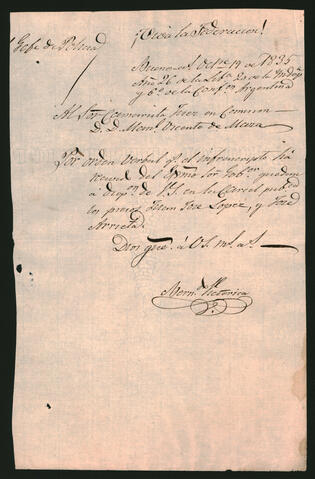 ¡Viva la Federacion!
Gefe de Policia
Buenos As Octre 19 de 1835
Año 26 de la Libd 20 de la Indepa
y 6º de la Confon Argentina
Al Sor Camarista Juez en Comision
D. D. Manl Vicente de Maza
Por orden verbal qe el infrascripto há
recibido del Sor Gobor quedan
a dispon de V.S. en la Carcel pubca
los presos Juan José Lopez, y José
Arrieta.
Dios gue. á V.S. ms. as.
Berndo Victorica